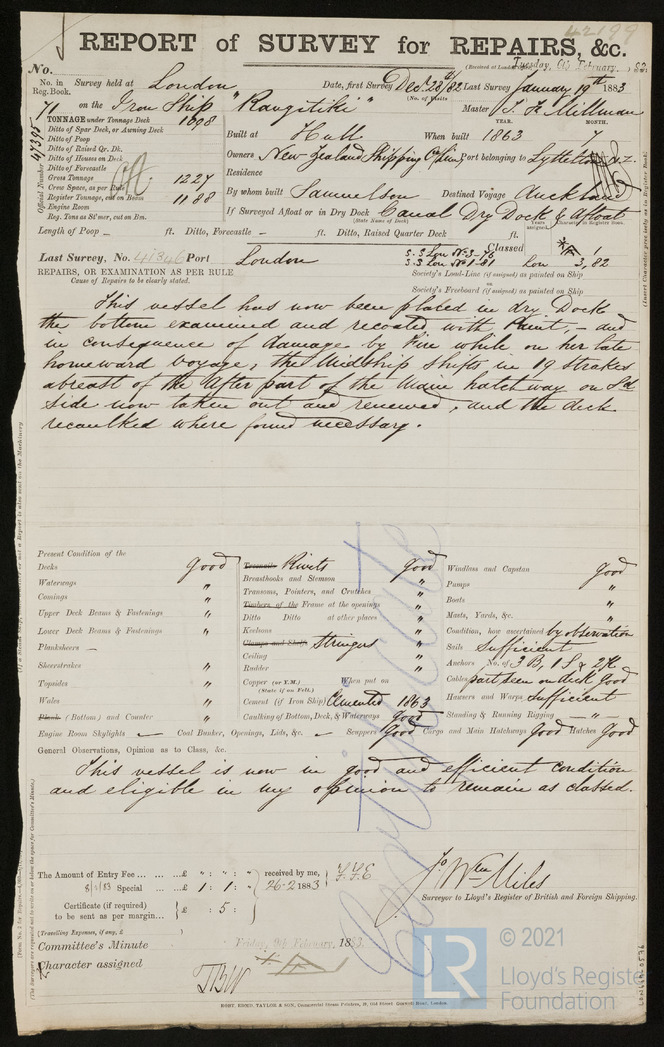 42199
REPORT of SURVEY for REPAIRS, &c.
No. (Received at London Tuesday, 6th February, 1883
No. in Reg. Book. Survey held at London Date, first Survey Decr. 28/82 Last Survey January 19th 1883
(No. of Visits
71 on the Iron Ship "Rangitiki" Master J. F. Millman
TONNAGE under Tonnage Deck 1098
Ditto of Spar Deck, or Awning Deck
Ditto of Poop
Ditto of Raised Qr. Dk.
Ditto of Houses on Deck
Ditto of Forecastle
Gross Tonnage 1227
Crew Space, as per Rule
Register Tonnage, cut on Beam 1188
Engine Room
Reg. Tons as St'mer, cut on Bm.
Official Number 47395
YEAR. MONTH.
Built at Hull When built 1863 7
Owners New Zealand Shipping Co Lim Port belonging to Lyttelton N.Z.
Residence
By whom built Samuelson Destined Voyage Auckland
If Surveyed Afloat or in Dry Dock Canal Dry Dock & Afloat
(State Name of Dock)
Length of Poop – ft. Ditto, Forecastle – ft. Ditto, Raised Quarter Deck ft.
Classed
Last Survey, No. 41346 Port London S.S Lon No 3-76
S.S Lon No 1-81 Lon 3,82
REPAIRS, OR EXAMINATION AS PER RULE
Cause of Repairs to be clearly stated.
Society's Load-Line (if assigned) as painted on Ship
or
Society's Freeboard (if assigned) as painted on Ship
This vessel has now been placed in dry Dock
the bottom examined and recoated with Paint, – and
in consequence of damage by Fire while on her late
homeward voyage, the Midship Shifts in 19 Strakes
abreast of the After part of the Main hatchway on Sd
side now taken out and renewed, and the deck
recaulked where found necessary.
Present Condition of the
Decks Good
Waterways "
Comings "
Upper Deck Beams & Fastenings "
Lower Deck Beams & Fastenings "
Planksheers –
Sheerstrakes "
Topsides "
Wales "
Plank (Bottom) and Counter "
Engine Room Skylights Coal Bunker, Openings, Lids, &c. Scuppers Good Cargo and Main Hatchways Good Hatches Good
Treenails Rivets Good
Breasthooks and Stemson "
Transoms, Pointers, and Crutches "
Timbers of the Frame at the openings "
Ditto Ditto at other places "
Keelsons "
Clamps and Shelfs Stringers "
Ceiling "
Rudder "
Copper (or Y.M.) When put on
(State if on Felt.)
Cement (if Iron Ship) Cemented 1863
Caulking of Bottom, Deck, & Waterways Good
Windlass and Capstan Good
Pumps "
Boats "
Masts, Yards, &c. "
Condition, how ascertained by observation
Sails Sufficient
Anchors No. of 3 B, 1 S & 2 K
Cables part seen on deck Good
Hawsers and Warps Sufficient
Standing & Running Rigging – " –
General Observations, Opinion as to Class, &c.
This vessel is now in good and efficient condition
and eligible in my opinion to remain as classed.
Certificate
The Amount of Entry Fee ... £ " : " : " received by me,
Special ... £ 1 : 1 : 26.2 1883
Certificate (if required) to be sent as per margin... £ : 5 :
(Travelling Expenses, if any, £ )
Jo Wm Miles
Surveyor to Lloyd's Register of British and Foreign Shipping.
Committee's Minute Friday, 9th February, 1883.
Character assigned
TBW
© 2021
LR Lloyd's Register
Foundation